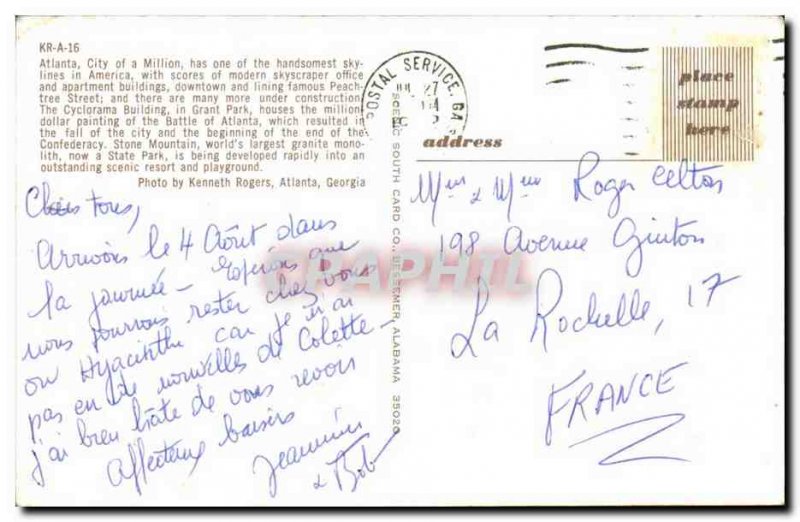 KR-A-16
Atlanta, City of a Million, has one of the handsomest sky-
lines in America, with scores of modern skyscraper office
and apartment buildings, downtown and lining famous Peach-
tree Street; and there are many more under construction.
The Cyclorama Building, in Grant Park, houses the million
dollar painting of the Battle of Atlanta, which resulted in
the fall of the city and the beginning of the end of the
Confederacy. Stone Mountain, world's largest granite mono-
lith, now a State Park, is being developed rapidly into an
outstanding scenic resort and playground.
Photo by Kenneth Rogers, Atlanta, Georgia
Chers tous,
Arrivons le 4 Août dans
la journée - Espérons que
nous pourrons rester chez vous
ou Hyacinthe car je n'ai
pas eu de nouvelles de Colette -
j'ai bien hâte de vous revoir
Affectueux baisers
Jeannine
& Bob
SCENIC SOUTH CARD CO., BESSEMER, ALABAMA 35020
POSTAL SERVICE, GA
27
place
stamp
here
address
Roger
198 Avenue
La Rochelle, 17
FRANCE
CPAPHIL